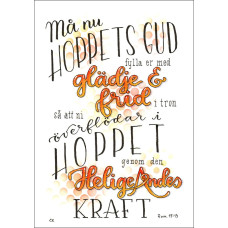 Må nu
HOPPETS GUD
fylla er med
glädje &
frid i tron
så att ni
överflödar i
HOPPET
genom den
Helige Andes
KRAFT
Rom. 15:13